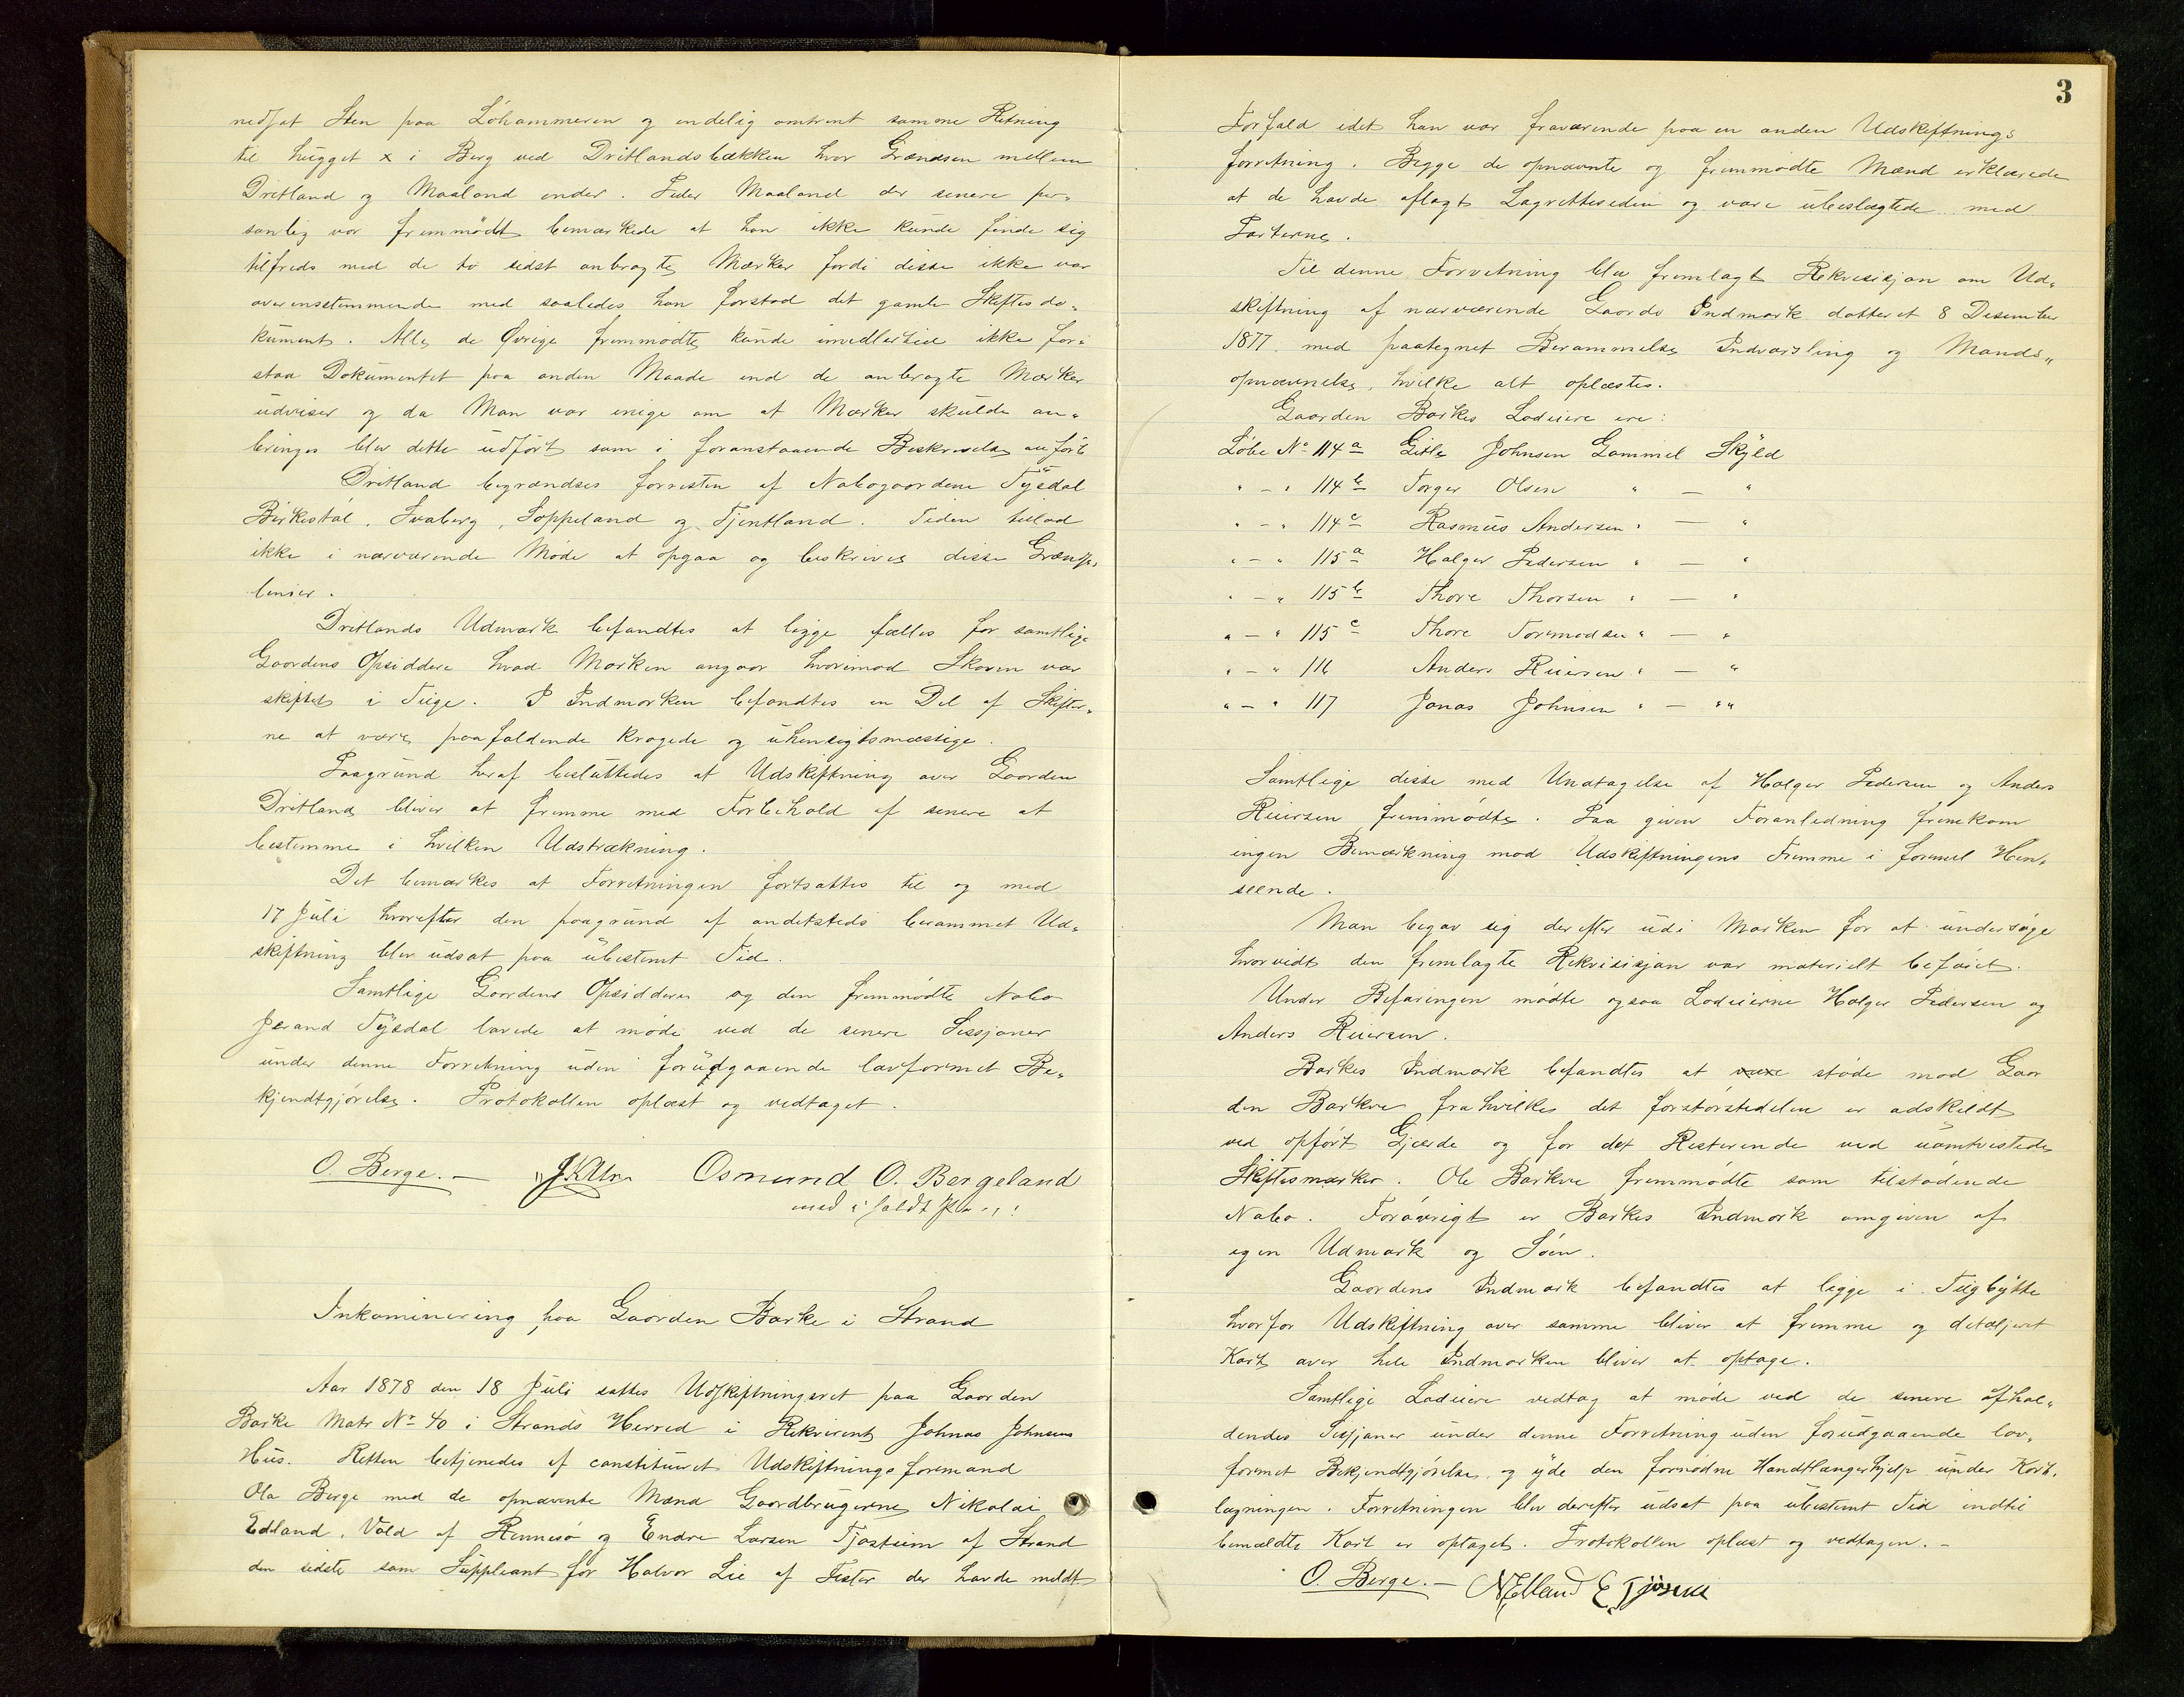 nedsat Sten paa Löhammeren og endelig omtrent samme Retning
til hugget x i Berg ved Dritlandsbækken hvor Grændsen mellem
Dritland og Maaland ender. Peder Maaland der senere per-
sonlig var fremmödt bemærkede at han ikke kunde finde sig
tilfreds med de to sidst anbragte Mærker fordi disse ikke var
overensstemmende med saaledes han forstod det gamle Skiftesdo-
kument. Alle de Øvrige fremmødte kunde imidlertid ikke for-
staa Dokumentet paa anden Maade end de anbragte Mærker
udviser og da Man var enige om at Mærker skulde an-
bringes blev dette udført som i foranstaaende Beskrivelse anført
Dritland begrændses forresten af Nabogaardene Tysdal
Birkestøl, Svaberg, Soppeland og Tjentland. Tiden tillod
ikke i nærværende Møde at opgaa og beskrives disse Grænse-
linier.
Dritlands Udmark befandtes at ligge fælles for samtlige
Gaardens Opsiddere hvad Marken angaar hvorimod Skoven var
skiftet i Teige. I Indmarken befandtes en Del af Skifter-
ne at være paafaldende krogede og uhensigtsmæssige.
Paagrund heraf besluttedes at Udskiftning over Gaarden
Dritland bliver at fremme med Forbehold af senere at
bestemme i hvilken Udstrækning.
Det bemærkes at Forretningen fortsattes til og med
17 Juli hvorefter den paagrund af andetsteds berammet Ud-
skiftning blev udsat paa ubestemt Tid.
Samtlige Gaardens Opsiddere og den fremmødte Nabo
Jerand Tysdal lovede at møde ved de senere Sessjoner
under denne Forretning uden forudgaaende lovformet Be-
kjendtgjørelse. Protokollen oplæst og vedtaget.
O. Berge.- Osmund O. Bergeland
Inkaminering paa Gaarden Barke i Strand
Aar 1878 den 18 Juli sattes Udskiftningsret paa Gaarden
Barke Matr No 40 i Strands Herred i Rekvirent Johnas Johnsens
Hus. Retten betjenedes af constitueret Udskiftningsformand
Ola Berge med de opnævnte Mænd Gaardbrugerne Nikolai
Edland, Vold af Rennesø og Endre Larsen Tjøstheim af Strand
den sidste som Suppleant for Halvor Lie af Fister der havde meldt
3
Forfald idet han var fraværende paa en anden Udskiftnings
forretning. Begge de opnævnte og fremmødte Mænd erklærede
at de havde aflagt Lagretteseden og vare ubeslægtede med
Parterne.
Til denne Forretning blev fremlagt Rekvisisjon om Ud-
skiftning af nærværende Gaards Indmark datteret 8 Desember
1877 med paategnet Berammelse Indvarsling og Mands-
opnævnelse, hvilke alt oplæstes.
Gaarden Barkes Lodeiere ere:
Løbe No 114 a Gitle Johnsen Gammel Skyld
" - " 114 b Torger Olsen " - "
" - " 114 c Rasmus Andersen " - "
" - " 115 a Holger Pedersen " - "
" - " 115 b Thore Thorsen " - "
" - " 115 c Thore Tormodsen " - "
" - " 116 Anders Reiersen " - "
" - " 117 Jonas Johnsen " - "
Samtlige disse med Undtagelse af Holger Pedersen og Anders
Reiersen fremmødte. Paa given Foranledning fremkom
ingen Bemærkning mod Udskiftningens Fremme i formel Hen-
seende.
Man begav sig derefter ud i Marken for at undersøge
hvorvidt den fremlagte Rekvisisjon var materielt beføiet.
Under Befaringen mødte ogsaa Lodeierne Holger Pedersen og
Anders Reiersen.
Barkes Indmark befandtes at være støde mod Gaar
den Barkve fra hvilke det forstørstedelen er adskildt
ved opført Gjærde og for det Resterende ved uomtvistede
Skiftesmærker. Ole Barkve fremmødte som tilstødende
Nabo. Forøvrigt er Barkes Indmark omgiven af
egen Udmark og Søen.
Gaardens Indmark befandtes at ligge i Teigbytte
hvorfor Udskiftning over samme bliver at fremme og detaljeret
Kart over hele Indmarken bliver at optage.
Samtlige Lodeiere vedtog at møde ved de senere afhol-
dendes Sessjoner under denne Forretning uden forudgaaende lov-
formet Bekjendtgjørelse, og yde den fornødne Handtlangerhjelp under Kort-
lægningen. Forretningen blev derefter udsat paa ubestemt Tid indtil
bemældte Kort er optaget. Protokollen oplæst og vedtagen.-
O. Berge.- N Edland E Tjøstem